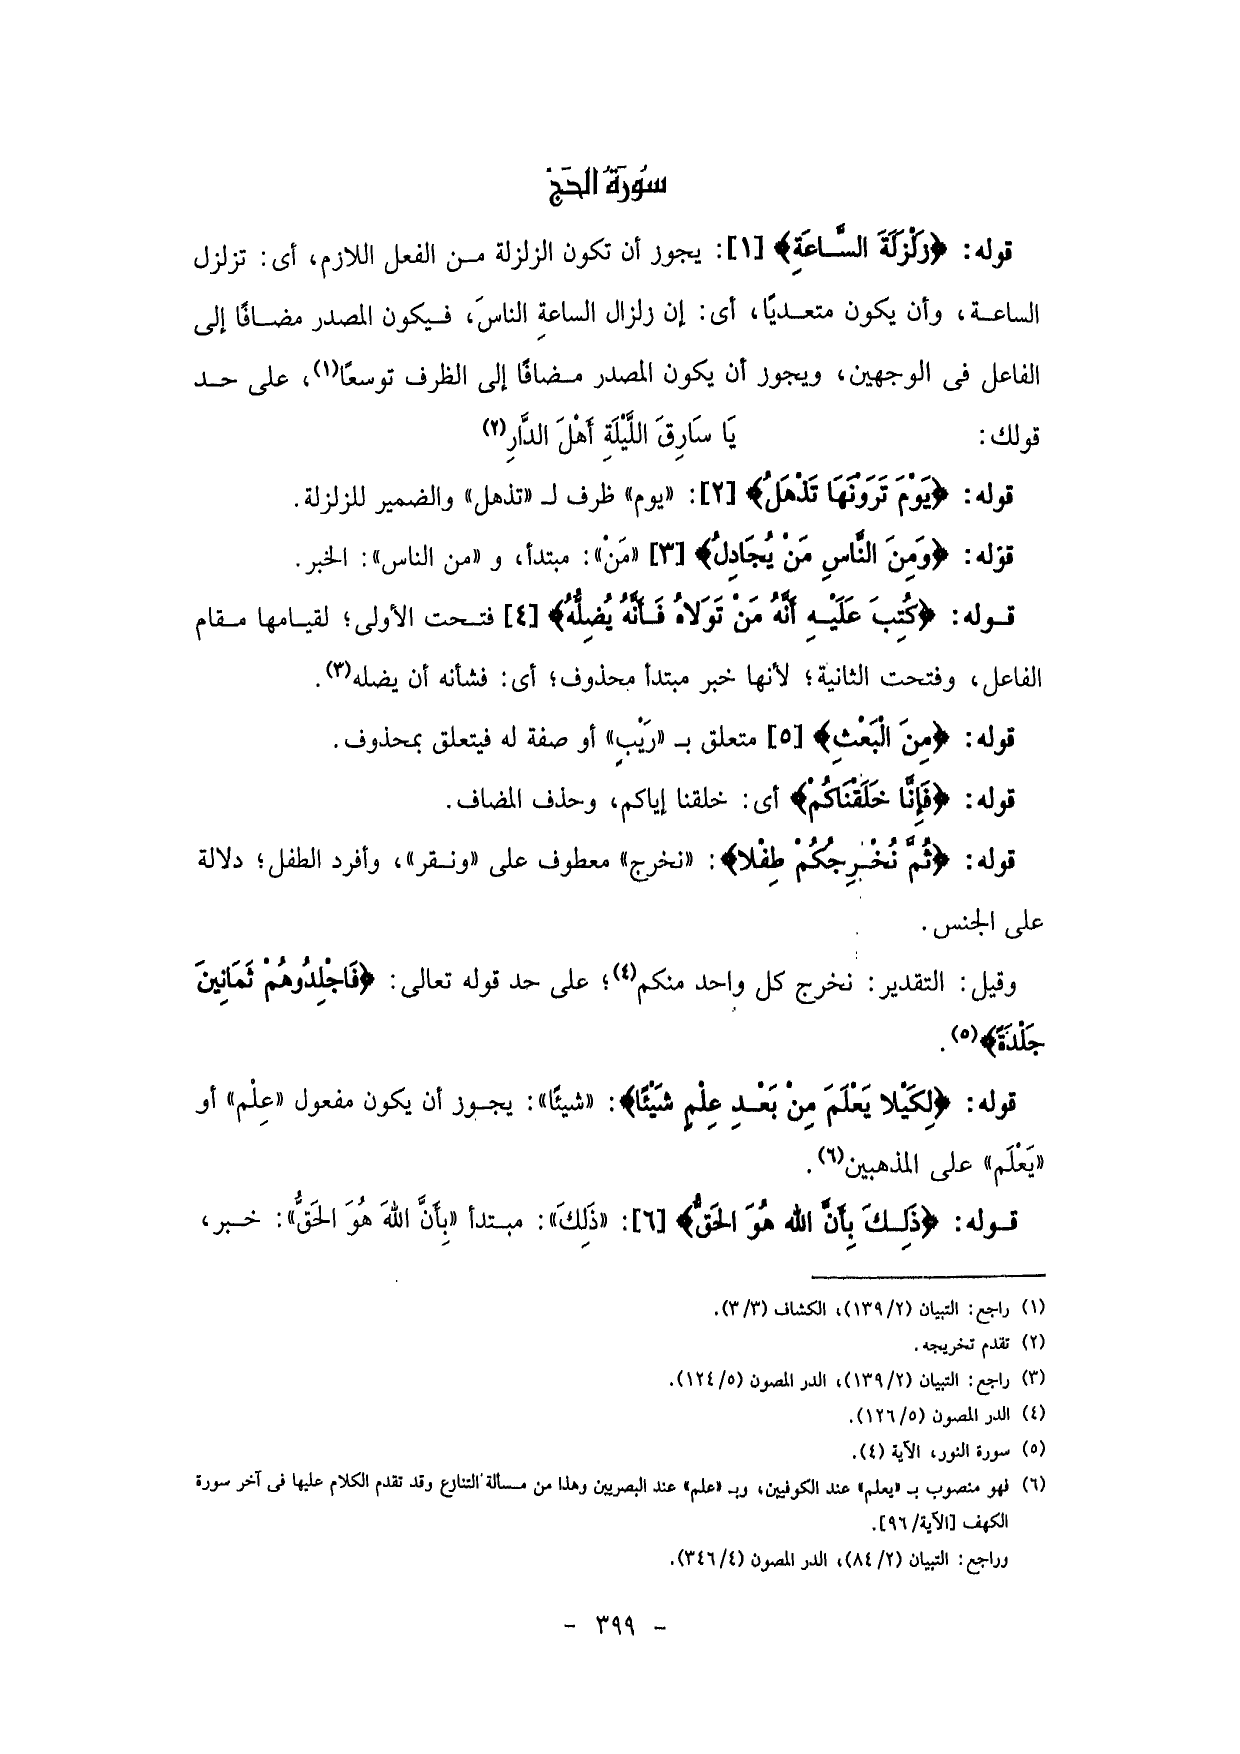 سُورَةُ الحَجّ
قوله: ﴿زَلْزَلَةَ السَّاعَةِ﴾ [١]: يجوز أن تكون الزلزلة مـن الفعل اللازم، أى: تزلزل
الساعـة، وأن يكون متعـديًا، أى: إن زلزال الساعةِ الناسَ، فـيكون المصدر مضـافًا إلى
الفاعل فى الوجهين، ويجوز أن يكون المصدر مـضافًا إلى الظرف توسعًا(١)، على حـد
قولك: يَا سَارِقَ اللَّيْلَةِ أَهْلَ الدَّارِ(٢)
قوله: ﴿يَوْمَ تَرَوْنَهَا تَذْهَلُ﴾ [٢]: «يوم» ظرف لـ «تذهل» والضمير للزلزلة.
قوله: ﴿وَمِنَ النَّاسِ مَنْ يُجَادِلُ﴾ [٣] «مَنْ»: مبتدأ، و «من الناس»: الخبر.
قـوله: ﴿كُتِبَ عَلَيْـهِ أَنَّهُ مَنْ تَوَلاهُ فَـأَنَّهُ يُضِلُّهُ﴾ [٤] فتـحت الأولى؛ لقيـامها مـقام
الفاعل، وفتحت الثانية؛ لأنها خبر مبتدأ محذوف؛ أى: فشأنه أن يضله(٣).
قوله: ﴿مِنَ الْبَعْثِ﴾ [٥] متعلق بـ «رَيْبٍ» أو صفة له فيتعلق بمحذوف.
قوله: ﴿فَإِنَّا خَلَقْنَاكُمْ﴾ أى: خلقنا إياكم، وحذف المضاف.
قوله: ﴿ثُمَّ نُخْـرِجُكُمْ طِفْلا﴾: «نخرج» معطوف على «ونـقر»، وأفرد الطفل؛ دلالة
على الجنس.
وقيل: التقدير: نخرج كل واحد منكم(٤)؛ على حد قوله تعالى: ﴿فَاجْلِدُوهُمْ ثَمَانِينَ
جَلْدَةً﴾(٥).
قوله: ﴿لِكَيْلا يَعْلَمَ مِنْ بَعْـدِ عِلْمٍ شَيْئًا﴾: «شيئًا»: يجـوز أن يكون مفعول «عِلْم» أو
«يَعْلَم» على المذهبين(٦).
قـوله: ﴿ذَلِـكَ بِأَنَّ الله هُوَ الحَقُّ﴾ [٦]: «ذَلِكَ»: مبـتدأ «بِأَنَّ اللهَ هُوَ الحَقُّ»: خـبر،
(١) راجع: التبيان (١٣٩/٢)، الكشاف (٣/٣).
(٢) تقدم تخريجه.
(٣) راجع: التبيان (١٣٩/٢)، الدر المصون (١٢٤/٥).
(٤) الدر المصون (١٢٦/٥).
(٥) سورة النور، الآية (٤).
(٦) فهو منصوب بـ «يعلم» عند الكوفيين، وبـ «علم» عند البصريين وهذا من مسألة التنازع وقد تقدم الكلام عليها فى آخر سورة
الكهف [الآية/ ٩٦].
وراجع: التبيان (٨٤/٢)، الدر المصون (٣٤٦/٤).
- ٣٩٩ -